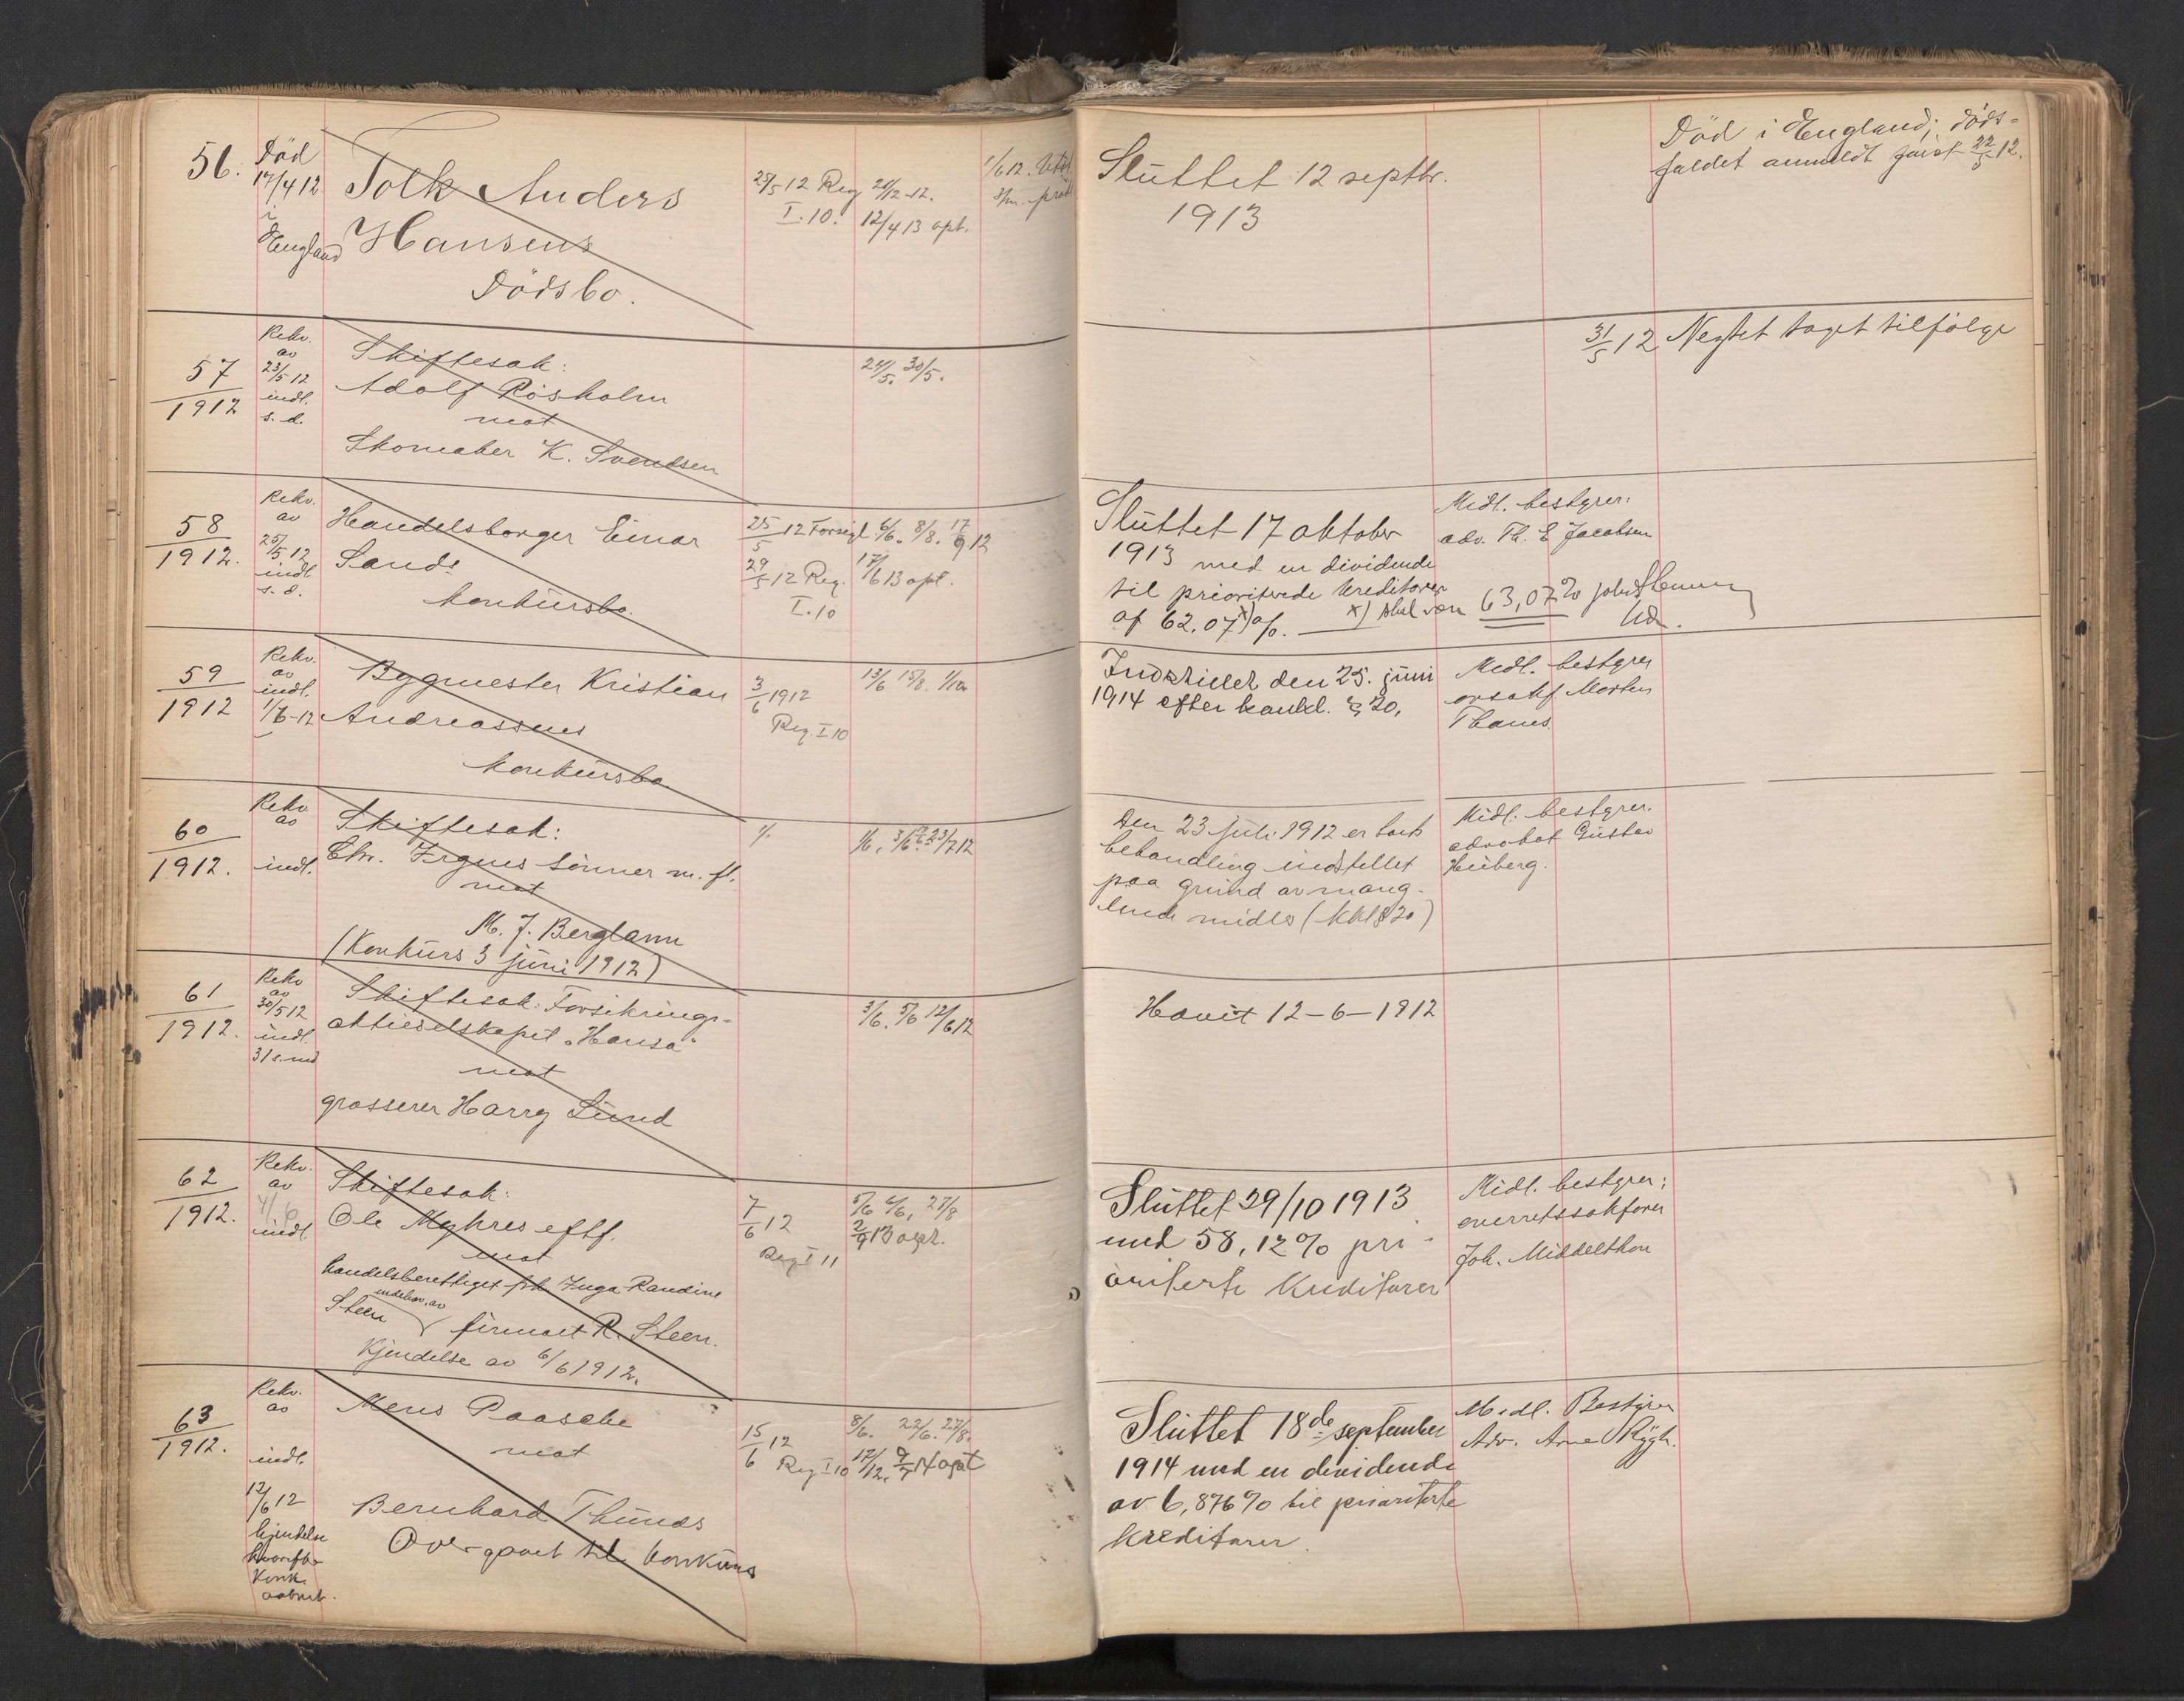 56.
Död
17/4 12
i
England
Tolk Anders
Hansens
Dödsbo.
25/5 12 Reg
I. 10.
12/4 13 opt.
1/6 12.
Sluttet 12 septbr.
1913
Död i England; döds=
faldet anmeldt först 22/5 12.
57
1912
Rekv.
av
23/5 12
indl.
s. d.
Skiftesak:
Adolf Rosholm
mot
Skomaker K. Svendsen
24/5. 30/5.
31/5 12 Negtet taget tilfölge
58
1912.
Rekv.
av
25/5 12
indl
s. d.
Handelsborger Einar
Sands
konkursbo.
25/5 12 Forsegl. 6/6. 8/8. 17/9 12
29/5 12 Reg. 17/6 13 opt.
I. 10
Sluttet 17 oktober
1913 med en dividende
til prioriterede kreditorer
af 62,07 x) %.
x) skal være 63,07 %
Midl. bestyrer:
adv. Th. E Jacobsen
59
1912
Rekv.
av
indl.
1/6-12
Bygmester Kristian
Andreassens
konkursbo
3/6 1912
Reg. I 10
13/6 15/8.
Indstillet den 25. juni
1914 efter konkl. § 20.
Midl. bestyrer
ovsakf Morten
60
1912.
Rekv
av
indl.
Skiftesak:
Chr. Irgens sönner m. fl.
mot
M. J. Berglann
(Konkurs 3 juni 1912)
Den 23 juli 1912 er bots
behandling indstillet
paa grund av mang-
lende midler (kkl § 20)
Midl. bestyrer.
advokat Gustav
Heiberg.
61
1912.
Rekv
av
30/5 12
indl.
31 s. md
Skiftesak: Forsikrings-
aktieselskapet "Hansa"
mot
grosserer Harry Lund
3/6. 5/6 12/6 12
Hævet 12-6-1912
62
1912.
Rekv.
av
4/6
indl
Skiftesak:
Ole Myhres eftf.
mot
handelsberettiget frk Inga Randine
Steen indehav. av firmaet R. Steen.
Kjendelse av 6/6 1912.
7/6 12
Reg I 11
Sluttet 29/10 1913
med 58,12 % pri-
oriterte kreditorer
Midl. bestyrer:
overretssakförer
Joh. Middelthon
63
1912.
Rekv.
av
indl.
12/6 12
kjendelse
hvorefter
konk.
aabnet.
Mens Paasche
mot
Bernhard Thunds
Overgaaet til konkurs
15/6 12
Reg I 10
8/6. 22/6. 27/8.
17/12. 9/7 14 opt
Sluttet 18de september
1914 med en dividende
av 6,876 % til prioriterte
kreditorer.
Midl. Bestyrer
Adv. Arne Rygh.